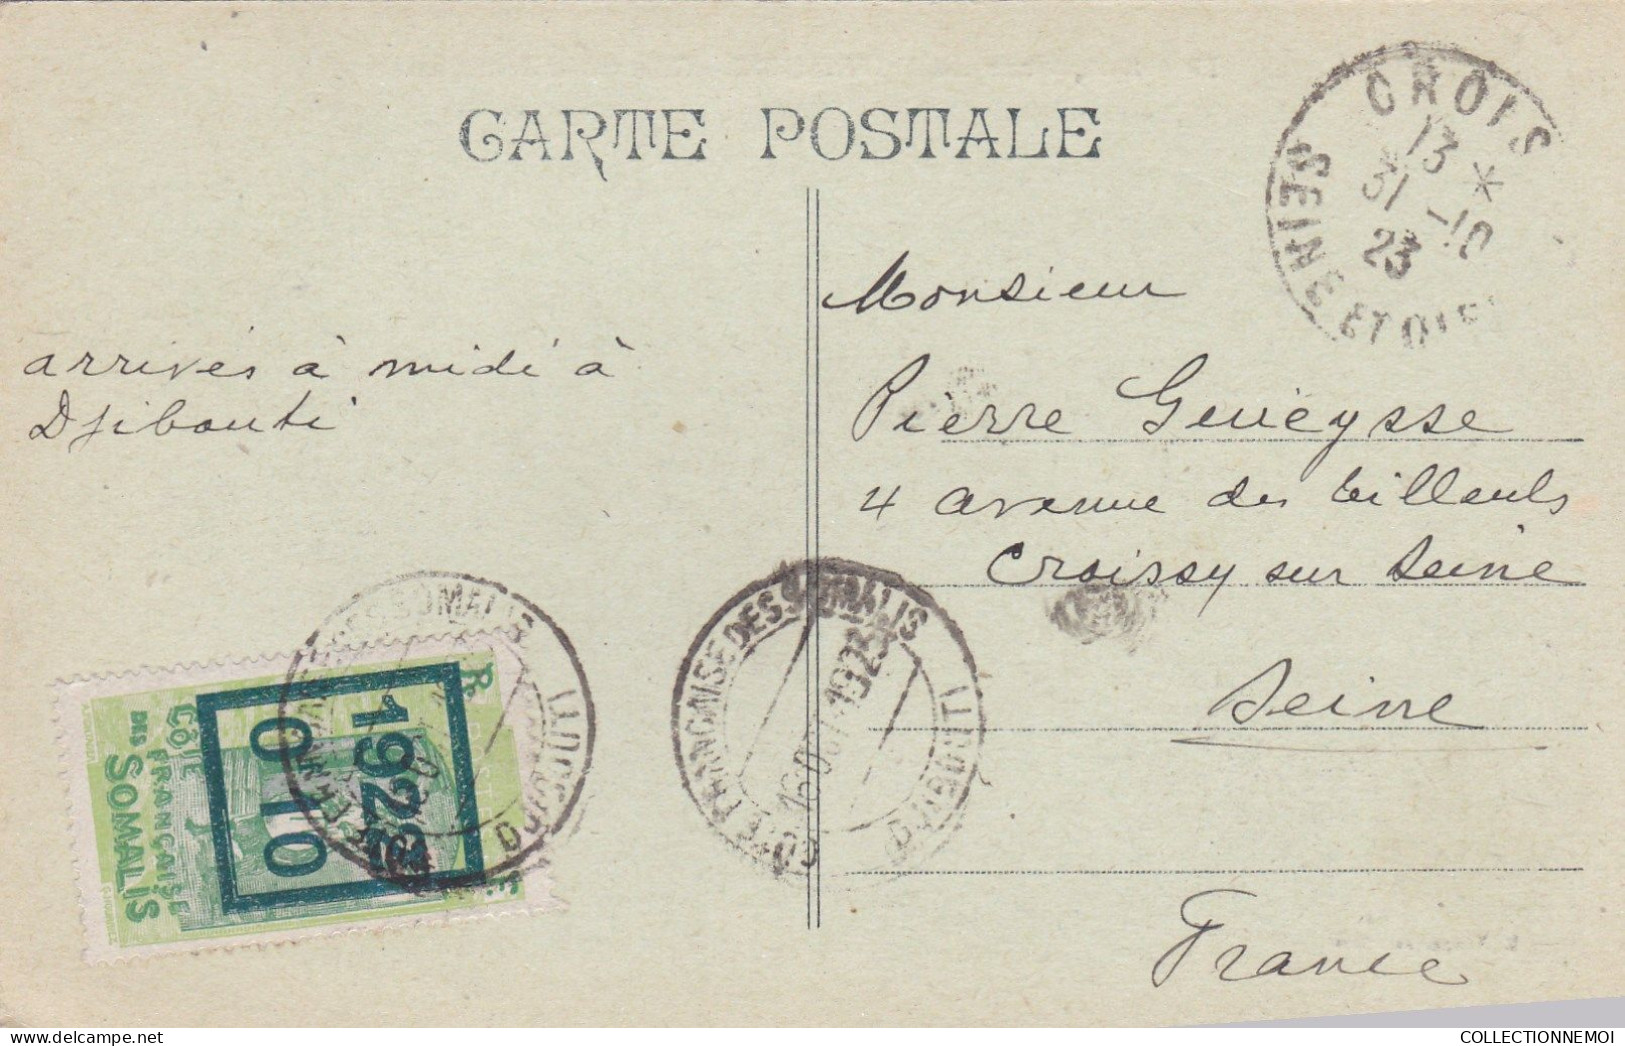 CARTE POSTALE
CROIS
13 *
31 -10
23
SEINE ET OISE
arrivés à midi à
Djibouti
Monsieur
Pierre Genieysse
4 avenue des tilleuls
Croissy sur Seine
Seine
France
CÔTE FRANÇAISE DES SOMALIS
16 OCT 1923
DJIBOUTI
DJIBOUTI
1922
0,10
CÔTE
FRANÇAISE
DES SOMALIS
COLLECTIONNEMOI